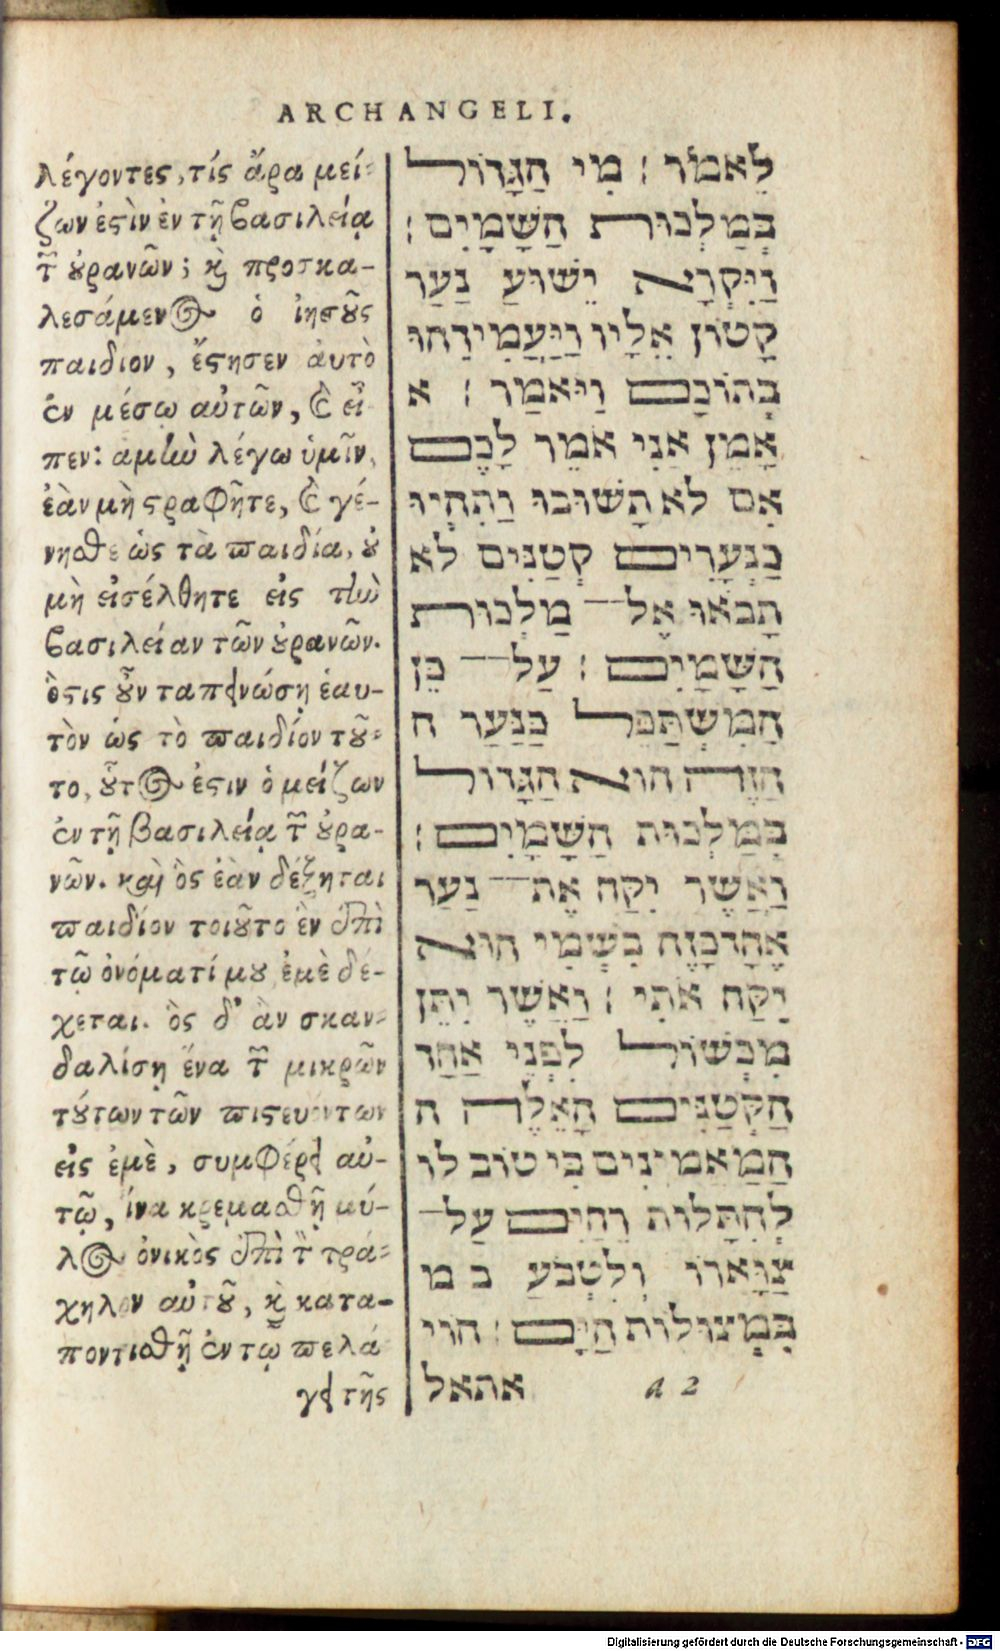 ARCHANGELI.
λέγοντες, τίς ἄρα μεί-
ζων ἐςὶν ἐν τῇ βασιλείᾳ
τῶν ȣ̓ρανῶν; κ̀ προσκα-
λεσάμεν@ ὁ ἰησȣ͂ς
παιδίον, ἔςησεν ἀυτὸ
ἐν μέσῳ αὐτῶν, καὶ εἶ
πεν: αμὴν λέγω ὑμῖν,
ἐὰν μὴ ςραφῆτε, καὶ γέ-
νησθε ὡς τὰ παιδία, ȣ̓
μὴ εἰσέλθητε εἰς τὴν
βασιλείαν τῶν ȣ̓ρανῶν.
ὅςις ȣ̓͂ν ταπεινώσῃ ἑαυ-
τὸν ὡς τὸ παιδίον τȣ͂-
το, ȣ̔͂τ@ ἐςιν ὁ μείζων
ἐν τῇ βασιλείᾳ τῶν ȣ̓ρα-
νῶν. καὶ ὃς ἐὰν δέξηται
παιδίον τοιȣ͂το ἓν ἐπὶ
τῷ ὀνόματί μȣ ἐμὲ δέ-
χεται. ὃς δ' ἂν σκαν-
δαλίσῃ ἕνα τῶν μικρῶν
τȣ́των τῶν πιςευόντων
εἰς ἐμὲ, συμφέρει αὐ-
τῷ, ἵνα κρεμασθῇ μύ-
λ@ ὀνικὸς ἐπὶ τὸν τρά-
χηλον αὐτȣ͂, κ̀ κατα-
ποντισθῇ ἐν τῷ πελά
γει τῆς
לֵאמֹר ׃ מִי הַגָּדוֹל
בְּמַלְכוּת הַשָּׁמָיִם ׃
וַיִּקְרָא יֵשׁוּעַ נַעַר
קָטוֹן אֵלָיו וַיַּעֲמִידֵהוּ
בְּתוֹכָם וַיּאמַר ׃ א
אָמֵן אֲנִי אֹמֵר לָכֶם
אִם לא תָשׁוּבוּ וַתִּהְיוּ
כַּנְּעָרִים קְטַנִּים לֹא
תָבֹאוּ אֶל־ מַלְכוּת
הַשָּׁמָיִם ׃ עַל־ כֵּן
הַמִּשְׁתַּפֵּל כַּנַּעַר ה
הַזֶּה הוּא הַגָּדוֹל
בְּמַלְכוּת הַשָּׁמָיִם ׃
וַאֲשֶׁר יִקַּח אֶת־ נַעַר
אֶחָד כָּזֶה בִּשְׁמִי הוּא
יִקַּח אֹתִי ׃ וַאֲשֶׁר יִתֵּן
מִכְשׁוֹל לִפְנֵי אַחַד
הַקְּטַנִּים הָאֵלֶּה ה
הַמַּאֲמִינִים בִּי טוֹב לוֹ
לְהִתָּלוֹת רֵחַיִם עַל־
צַוָּארוֹ וְלִטְבֹּעַ ב מ
בִּמְצוּלוֹת הַיָּם ׃ הוֹי
אתאל
A 2
Digitalisierung gefördert durch die Deutsche Forschungsgemeinschaft - DFG